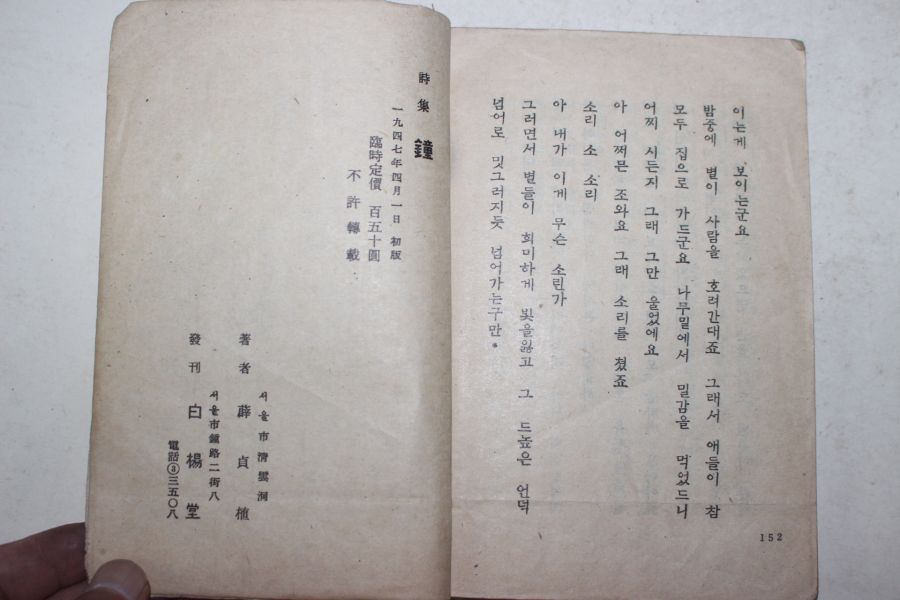 이는게 보이는군요
밤중에 별이 사람을 호려간대죠 그래서 애들이 참
모두 집으로 가드군요 나무밑에서 밀감을 먹었드니
어찌 시든지 그래 그만 울었에요
아 어쩌믄 조와요 그래 소리를 쳤죠
소리 소 소리
아 내가 이게 무슨 소린가
그러면서 별들이 희미하게 빛을잃고 그 드높은 언덕
넘어로 밋그러지듯 넘어가는구만.
152
詩集 鐘
一九四七年四月一日 初版
臨時定價 百五十圓
不許轉載
서울市淸雲洞
著者 薛貞植
서울市鐘路二街八
發刊 白楊堂
電話③三五〇八